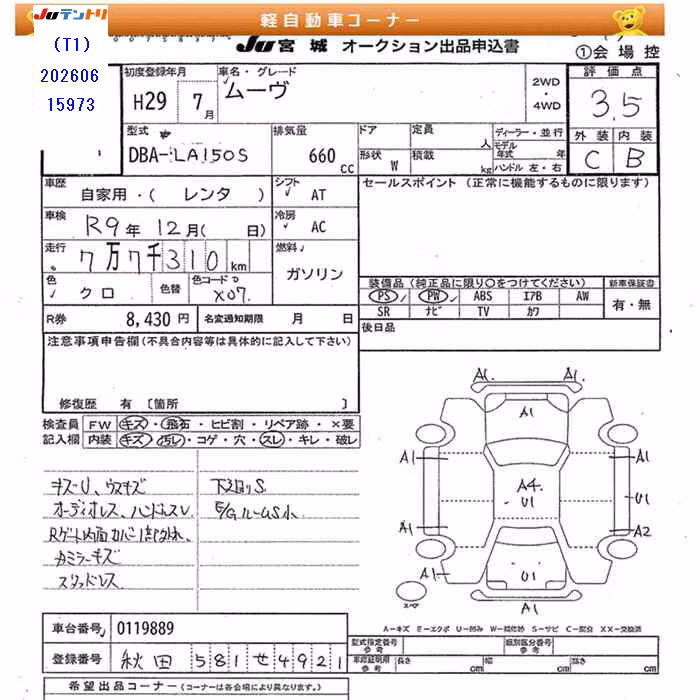 Juテントリ
軽自動車コーナー
(T1)
202606
15973
JU宮城 オークション出品申込書
①会場控
初度登録年月
H29 7月
車名・グレード
ムーヴ
2WD
・
4WD
評価点
3.5
外装 内装
C B
型式
DBA-LA150S
排気量
660 cc
ドア
定員 人
ディーラー・並行
形状 W
積載 kg
モデル年式 年
ハンドル 左・右
車歴
自家用・( レンタ )
シフト
AT
セールスポイント (正常に機能するものに限ります)
車検
R9年 12月( 日)
冷房
AC
走行
7万7千310km
燃料
ガソリン
色
クロ
色替
色コード
X07
装備品 (純正品に限り○をつけてください)
新車保証書
PS PW ABS エアB AW
有・無
SR ナビ TV カワ
R券 8,430円
名変通知期限 月 日
後日品
注意事項申告欄(不具合内容等は具体的に記入して下さい)
修復歴 有 〔箇所 〕
検査員記入欄
FW キズ・飛石・ヒビ割・リペア跡・×要
内装 キズ・汚レ・コゲ・穴・スレ・キレ・破レ
キズU、ウスキズ
オーディオレス、ハンドルスレ
Rゲート内面カバー
カミラーキズ
スタッドレス
下廻りS
E/GルームS小
A1 A1
A1
A1 A1
A4
U1
U1
A1 A2
A1 U1 A1
スペア
A-キズ E-エクボ U-凹み W-補修跡 S-サビ C-腐蝕 XX-交換済
車台番号 0119889
登録番号 秋田 581せ4921
型式指定番号 参考
類別区分番号 参考
車庫証明用 参考
長さ cm
幅 cm
高さ cm
希望出品コーナー(コーナーは各会場により異なります。)